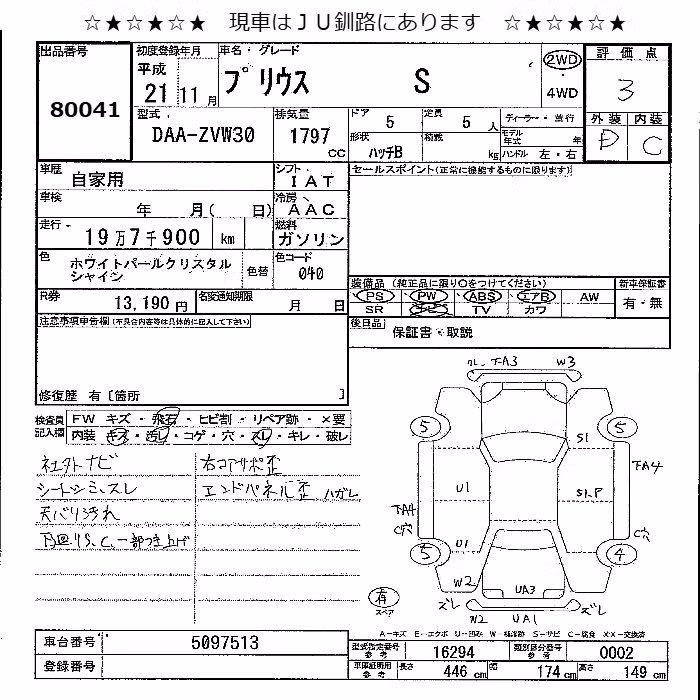 ☆★☆★☆★ 現車はＪＵ釧路にあります ☆★☆★☆★
出品番号
80041
初度登録年月
平成
21 11 月
車名・グレード
プリウス S
2WD
4WD
評価点
3
外装 内装
D C
型式
DAA-ZVW30
排気量
1797
CC
ドア 5
定員 5 人
形状 ハッチB
積載 kg
ディーラー・並行
モデル年式 年
ハンドル 左・右
車歴
自家用
シフト
IAT
車検
年 月( 日)
冷房
AAC
走行
19万7千900 km
燃料
ガソリン
色
ホワイトパールクリスタル
シャイン
色替
色コード
040
R券
13,190 円
名変通知期限
月 日
セールスポイント(正常に機能するものに限ります)
装備品 (純正品に限り○をつけてください)
PS PW ABS エアB AW
SR ナビ TV カワ
新車保証書
有・無
後日品
保証書・取説
注意事項申告欄(不具合内容等は具体的に記入して下さい)
修復歴 有〔箇所 〕
検査員
記入欄
FW キズ・飛石・ヒビ割・リペア跡・×要
内装 キズ・汚レ・コゲ・穴・スレ・キレ・破レ
社外ナビ
シートシミ、スレ
天バリ汚れ
右コアサポ歪
エンドパネル歪 ハガレ
下A3 W3
5 5
S1
下A4
U1
下A4
C穴
C穴
U1
5 4
W2
UA3
ズレ ズレ
W2 UA1
有
スペア
A－キズ E－エクボ U－凹み W－補修跡 S－サビ C－腐食 XX－交換済
車台番号
5097513
登録番号
型式指定番号
参考
16294
類別区分番号
参考
0002
車庫証明用
参考
長さ 446 cm
幅 174 cm
高さ 149 cm